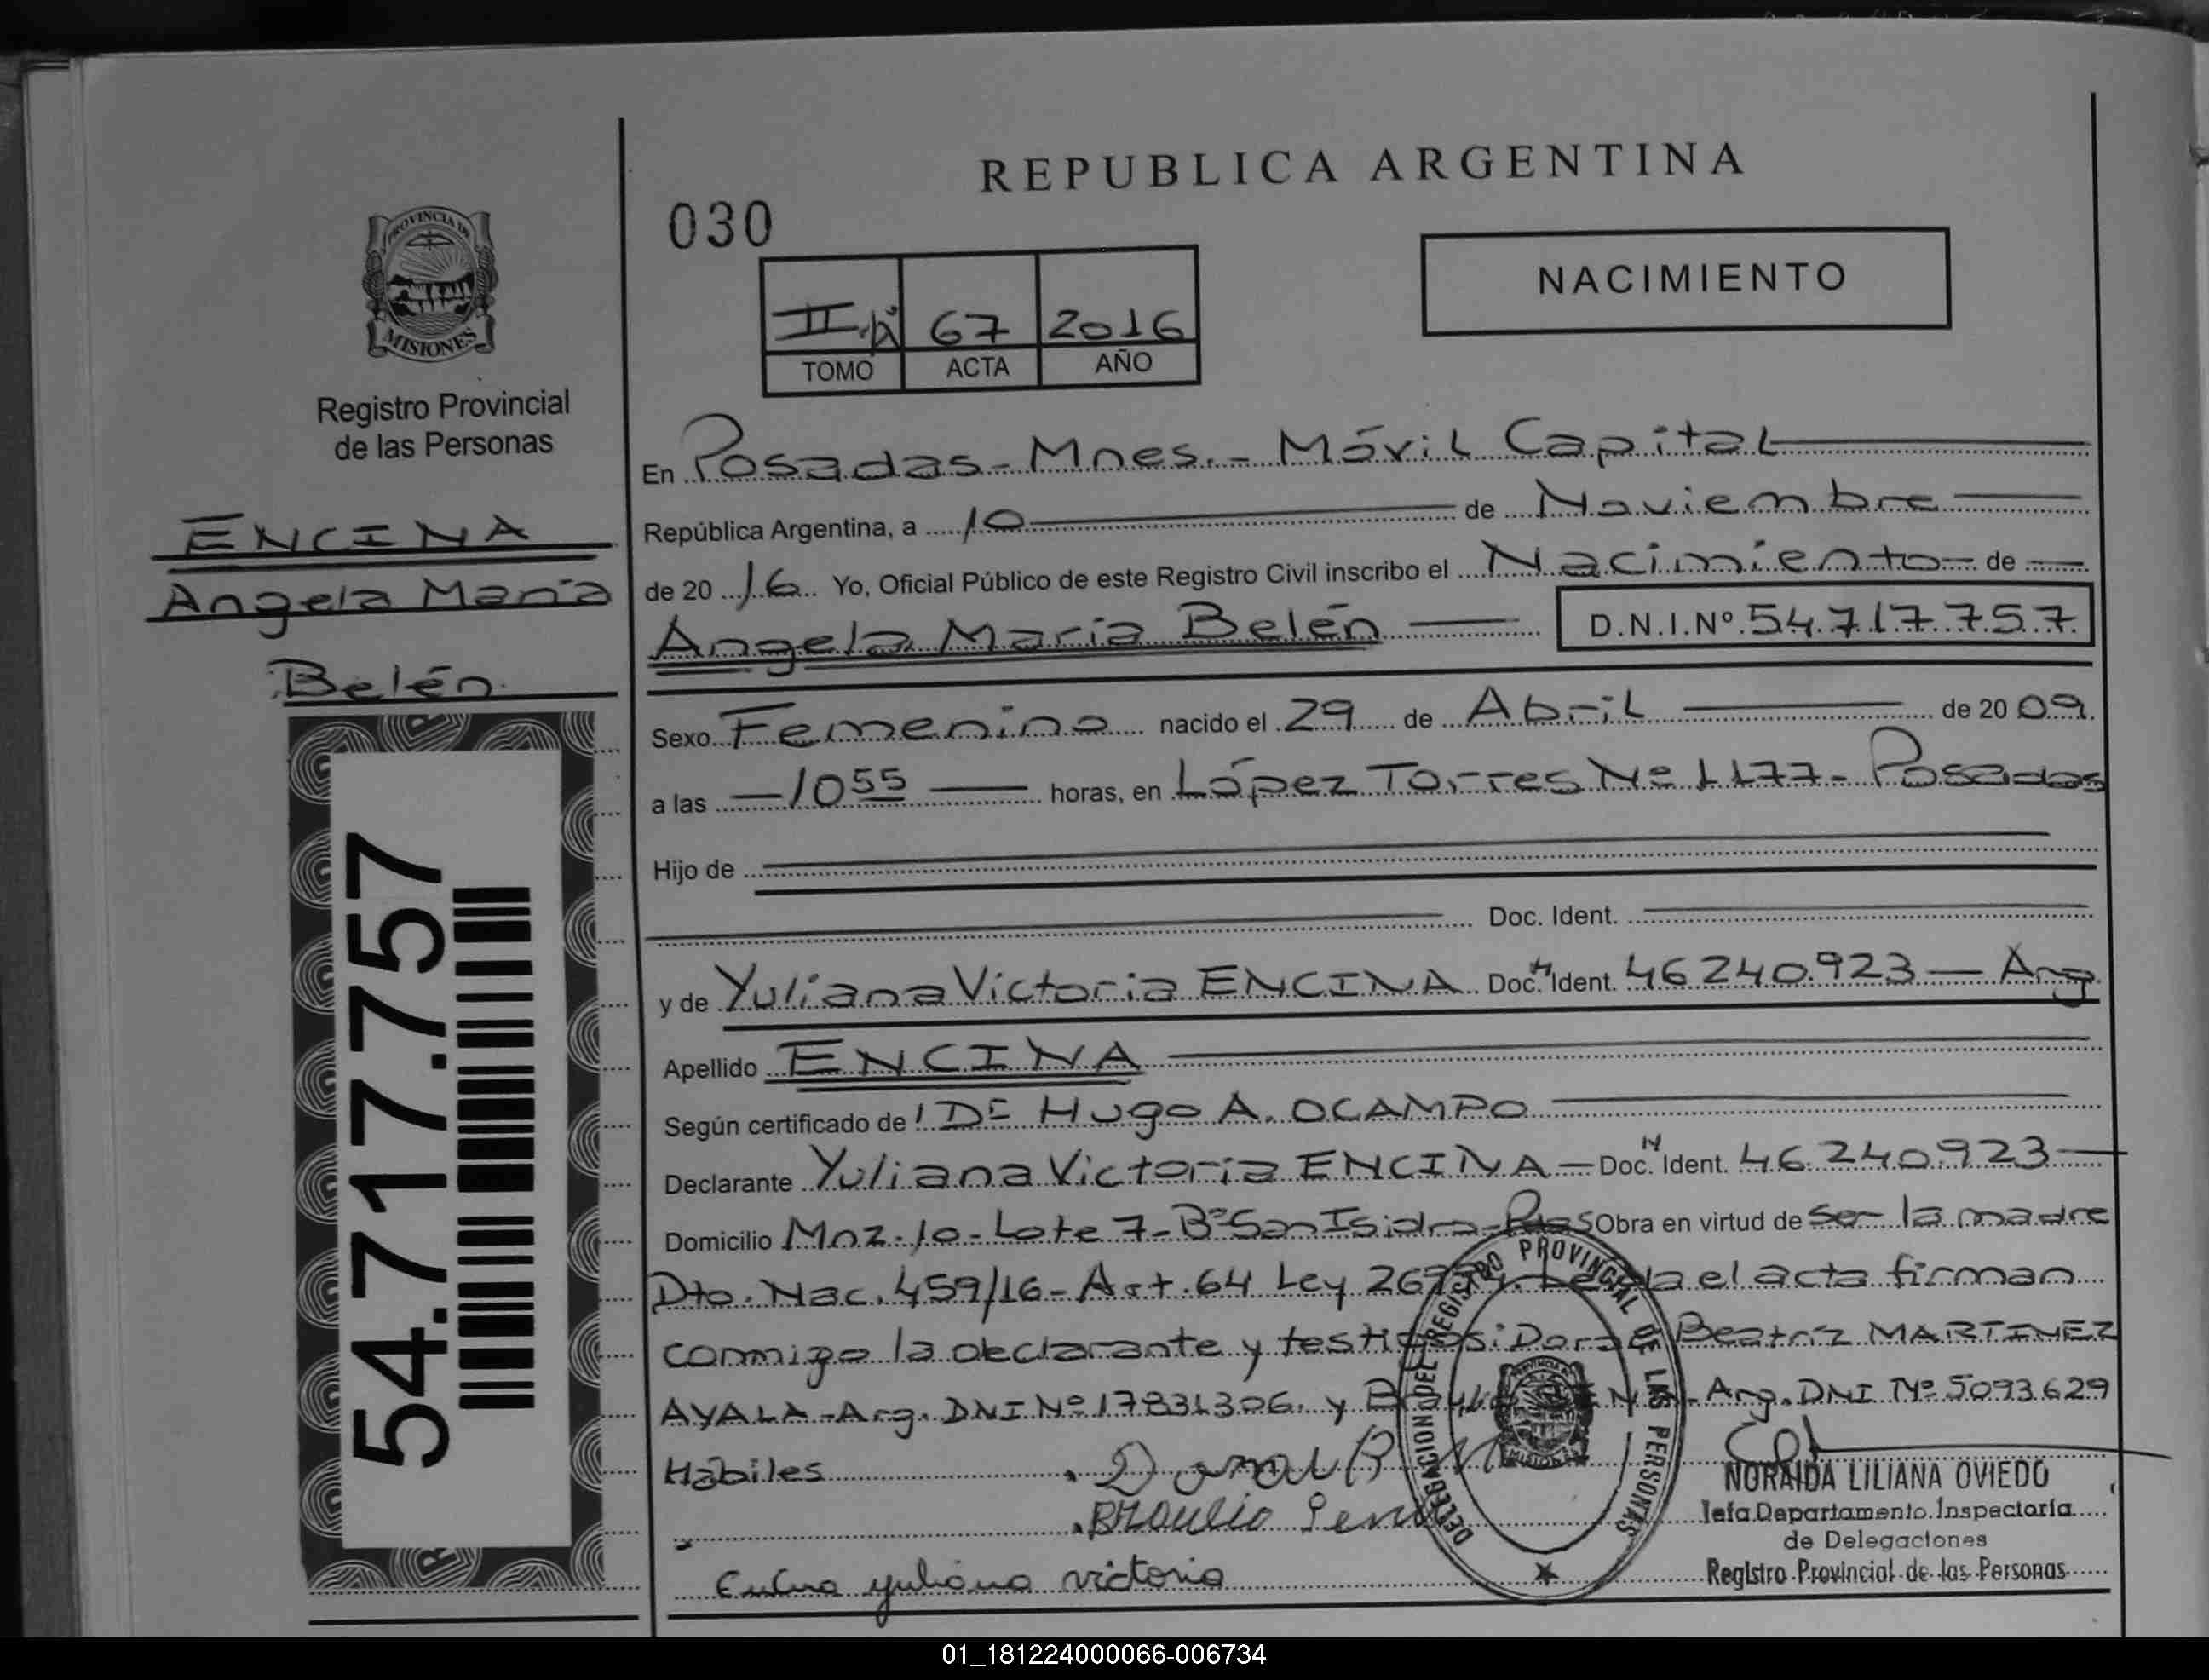 REPUBLICA ARGENTINA
030
NACIMIENTO
PROVINCIA DE
MISIONES
II 67 2016
TOMO ACTA AÑO
Registro Provincial
de las Personas
ENCINA
Angela María
Belén
54.717.757
En Posadas - Mnes. - Móvil Capital
República Argentina, a 10 de Noviembre
de 20 16 Yo, Oficial Público de este Registro Civil inscribo el Nacimiento de
Angela María Belén D.N.I.Nº 54.717.757
Sexo Femenino nacido el 29 de Abril de 20 09
a las 10 55 horas, en López Torres Nº 1177 - Posadas
Hijo de
Doc. Ident.
y de Yuliana Victoria ENCINA Doc. Ident. 46240.923 - Arg
Apellido ENCINA
Según certificado de Hugo A. OCAMPO
Declarante Yuliana Victoria ENCINA - Doc. Ident. 46.240.923
Domicilio Mnz. 10 - Lote 7 - Bº San Isidro - Obra en virtud de ser la madre
Dto. Nac. 459/16 - Art. 64 Ley el acta firman
conmigo la declarante y testigos: Beatriz MARTINEZ
AYALA - Arg. DNI Nº 17831306. y - Arg. DNI Nº 5093629
Hábiles
Braulio
yuliana victoria
DELEGACION DEL REGISTRO PROVINCIAL DE LAS PERSONAS
NORAIDA LILIANA OVIEDO
Jefa Departamento Inspectoría
de Delegaciones
Registro Provincial de las Personas
01_181224000066-006734